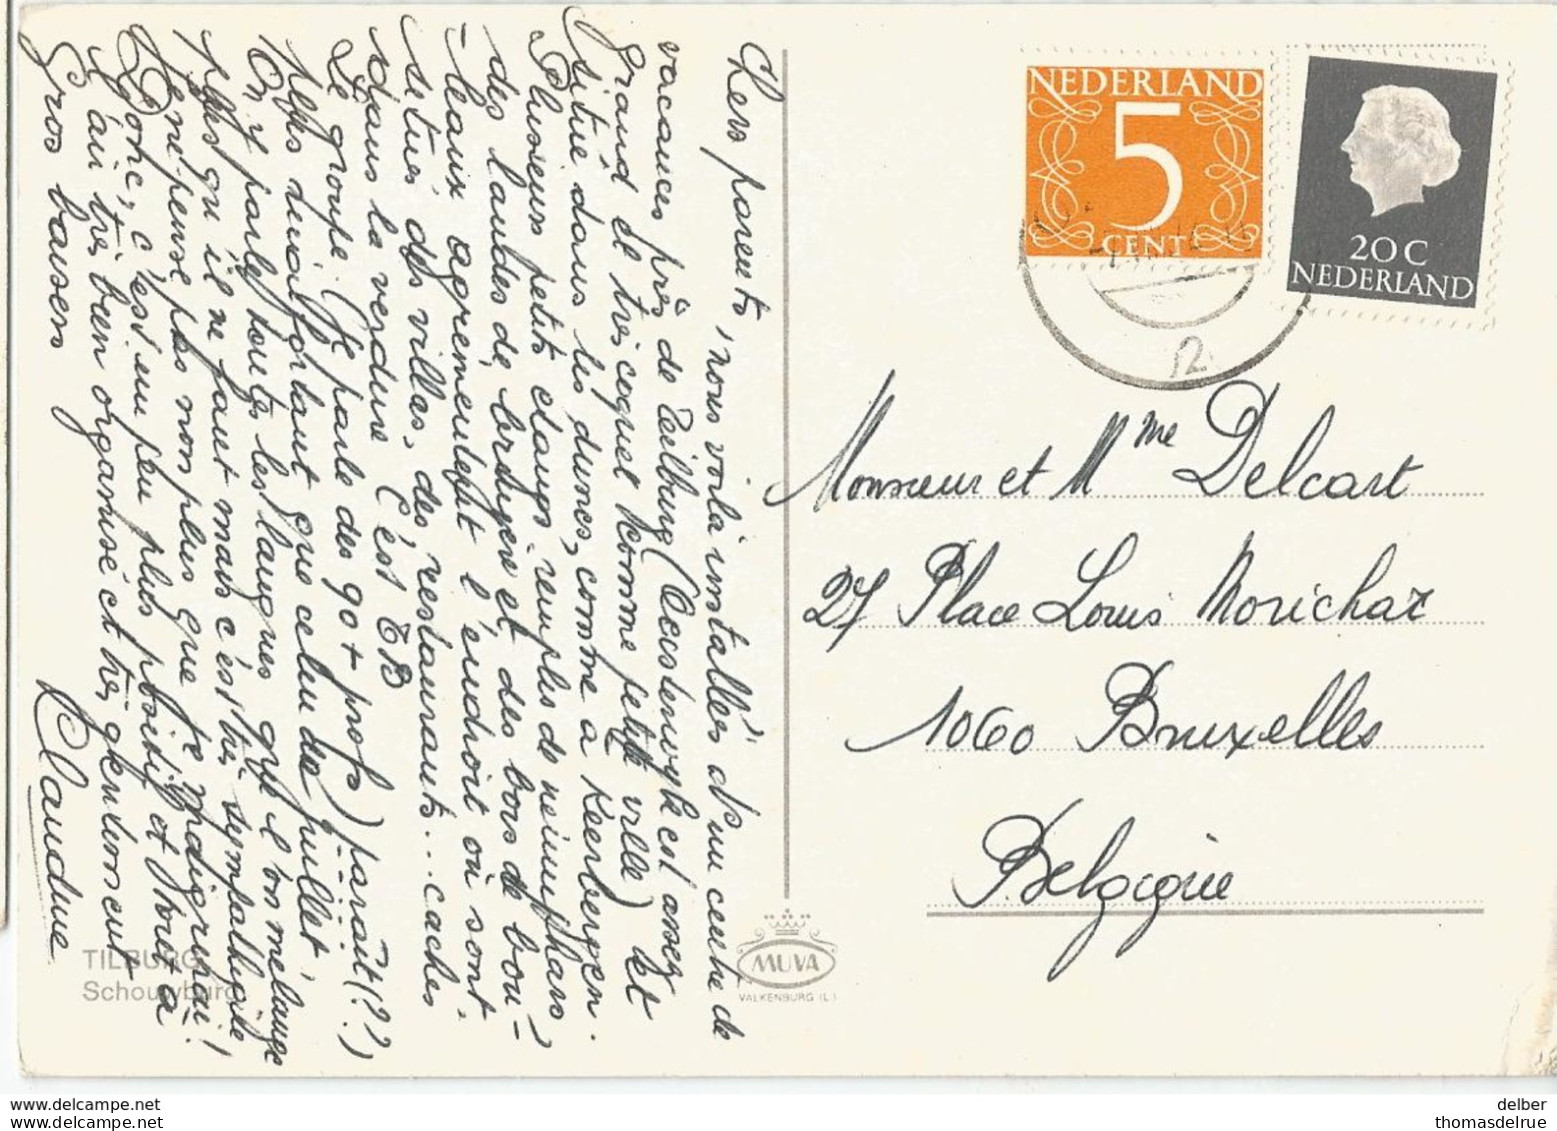 Chers parents, nous voilà installés d'un centre de
vacances près de Teilburg (Oosterwyk est assez
grand et très coquet comme petite ville) et
situé dans les dunes, comme a Keerbergen.
Plusieurs petits étangs remplis de neinuphars
des landes de bruyère et des bois de bou-
-leaux agrementent l'endroit où sont
situés des villas, des restaurants... cachés
dans la verdure C'est TB
Le groupe (Je parle des 90 + profs) paraît (?!)
plus décontractant que celui de juillet.
On y parle toutes les langues que l'on mélange
plus qu'il ne faut mais c'est très sympathique
Je ne pense pas non plus que je maigrirai!
Donc, c'est un peu plus positif et
l'air très bien organisé et très gentiment
Gros baisers
Claudine
TILBURG
Schouwburg
MUVA
VALKENBURG (L.)
NEDERLAND
5
CENT
20 C
NEDERLAND
12
Monsieur et Mme Delcart
27 Place Louis Morichar
1060 Bruxelles
Belgique
delcampe.net
thomasdelrue
delber
thomasdelrue